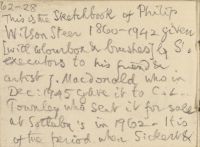 62-28
This is the Sketchbook of Philip
Wilson Steer 1860-1942 given
[with colour box & brushes] by S's
executors to his friend &
artist J. Macdonald who in
Dec: 1945 gave it to C.L.
Townley who sent it for sale
at Sotheby's in 1962 - It is
of the period when Sickert &